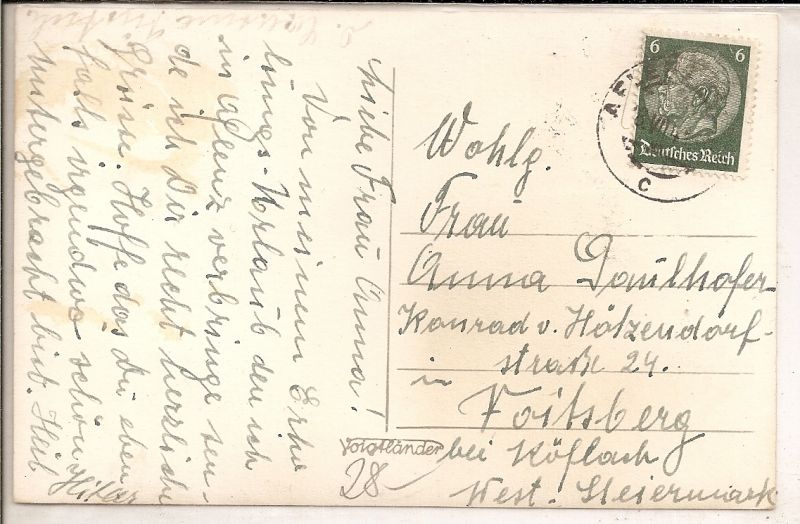 Liebe Frau Anna!
Von meinem Erho
lungs-Urlaub den ich
in Aflenz verbringe sen-
de ich Dir recht herzliche
Grüsse. Hoffe das Du eben
falls irgendwo schön
untergebracht bist. Heil
Hitler
6 6
Deutsches Reich
AF
c
Wohlg.
Frau
Anna Paulhofer
Konrad v. Hötzendorf-
straße 24.
in Voitsberg
bei Köflach
West. Steiermark
Voigtländer
28